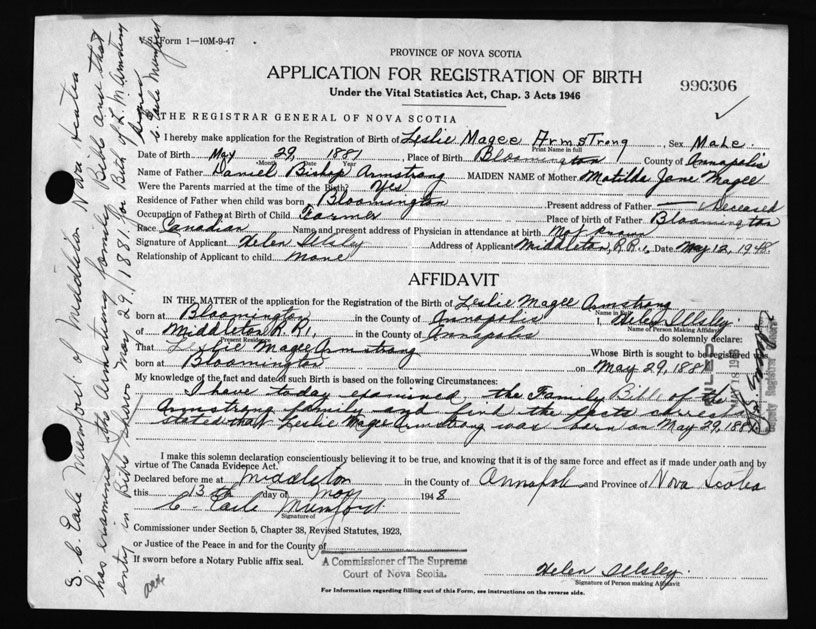 V.S. Form 1—10M-9-47
PROVINCE OF NOVA SCOTIA
APPLICATION FOR REGISTRATION OF BIRTH
Under the Vital Statistics Act, Chap. 3 Acts 1946
990306
THE REGISTRAR GENERAL OF NOVA SCOTIA
I hereby make application for the Registration of Birth of Leslie Magee Armstrong, Sex Male.
Print Name in full
Date of Birth May 29, 1881, Place of Birth Bloomington County of Annapolis
Month Day Year
Name of Father Daniel Bishop Armstrong MAIDEN NAME of Mother Matilda Jane Magee
Were the Parents married at the time of the Birth? Yes
Residence of Father when child was born Bloomington Present address of Father Deceased
Occupation of Father at Birth of Child Farmer Place of birth of Father Bloomington
Race Canadian Name and present address of Physician in attendance at birth Not known
Signature of Applicant Helen Illsley Address of Applicant Middleton, R.R.1, Date May 12, 1948
Relationship of Applicant to child none
AFFIDAVIT
IN THE MATTER of the application for the Registration of the Birth of Leslie Magee Armstrong
Name in full
born at Bloomington in the County of Annapolis I, Helen Illsley
Name of Person Making Affidavit
of Middleton R.R.1. in the County of Annapolis do solemnly declare:
Present Residence
That Leslie Magee Armstrong Whose Birth is sought to be registered was
born at Bloomington on May 29, 1881
My knowledge of the fact and date of such Birth is based on the following Circumstances:
I have today examined the Family Bible of the
Armstrong family and find the facts correct as
stated that Leslie Magee Armstrong was born on May 29, 1881
I make this solemn declaration conscientiously believing it to be true, and knowing that it is of the same force and effect as if made under oath and by
virtue of The Canada Evidence Act.
Declared before me at Middleton in the County of Annapolis and Province of Nova Scotia
this 13th day of May 1948
C. Earle Mumford
Signature of
Commissioner under Section 5, Chapter 38, Revised Statutes, 1923,
or Justice of the Peace in and for the County of
If sworn before a Notary Public affix seal.
A Commissioner of The Supreme
Court of Nova Scotia.
Helen Illsley.
Signature of Person making Affidavit
For Information regarding filling out of this Form, see instructions on the reverse side.
I, C. Earle Mumford of Middleton Nova Scotia
has examined the Armstrong family Bible and that
entry in Bible shows May 29, 1881 for Birth of L. M. Armstrong
C. Earle Mumford
FILED
MAY 18